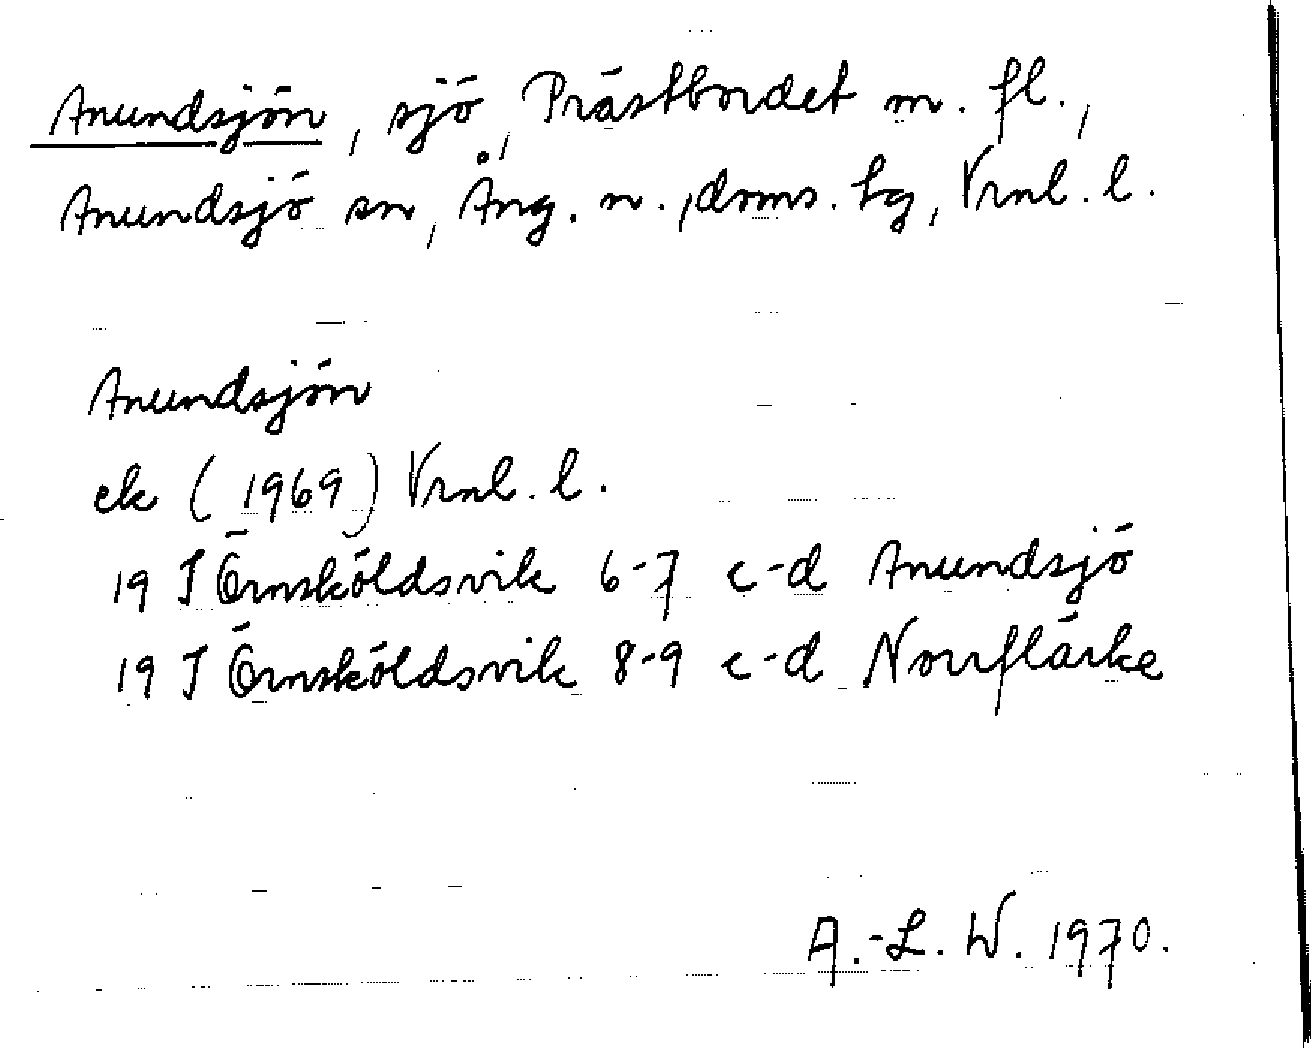 Anundsjön, sjö, Prästbordet m. fl.,
Anundsjö sn, Ång. n., doms. hg, Vrnl. l.
Anundsjön
ek (1969) Vrnl. l.
19 J Örnsköldsvik 6-7 c-d Anundsjö
19 J Örnsköldsvik 8-9 c-d Norrflärke
A.-L. W. 1970.